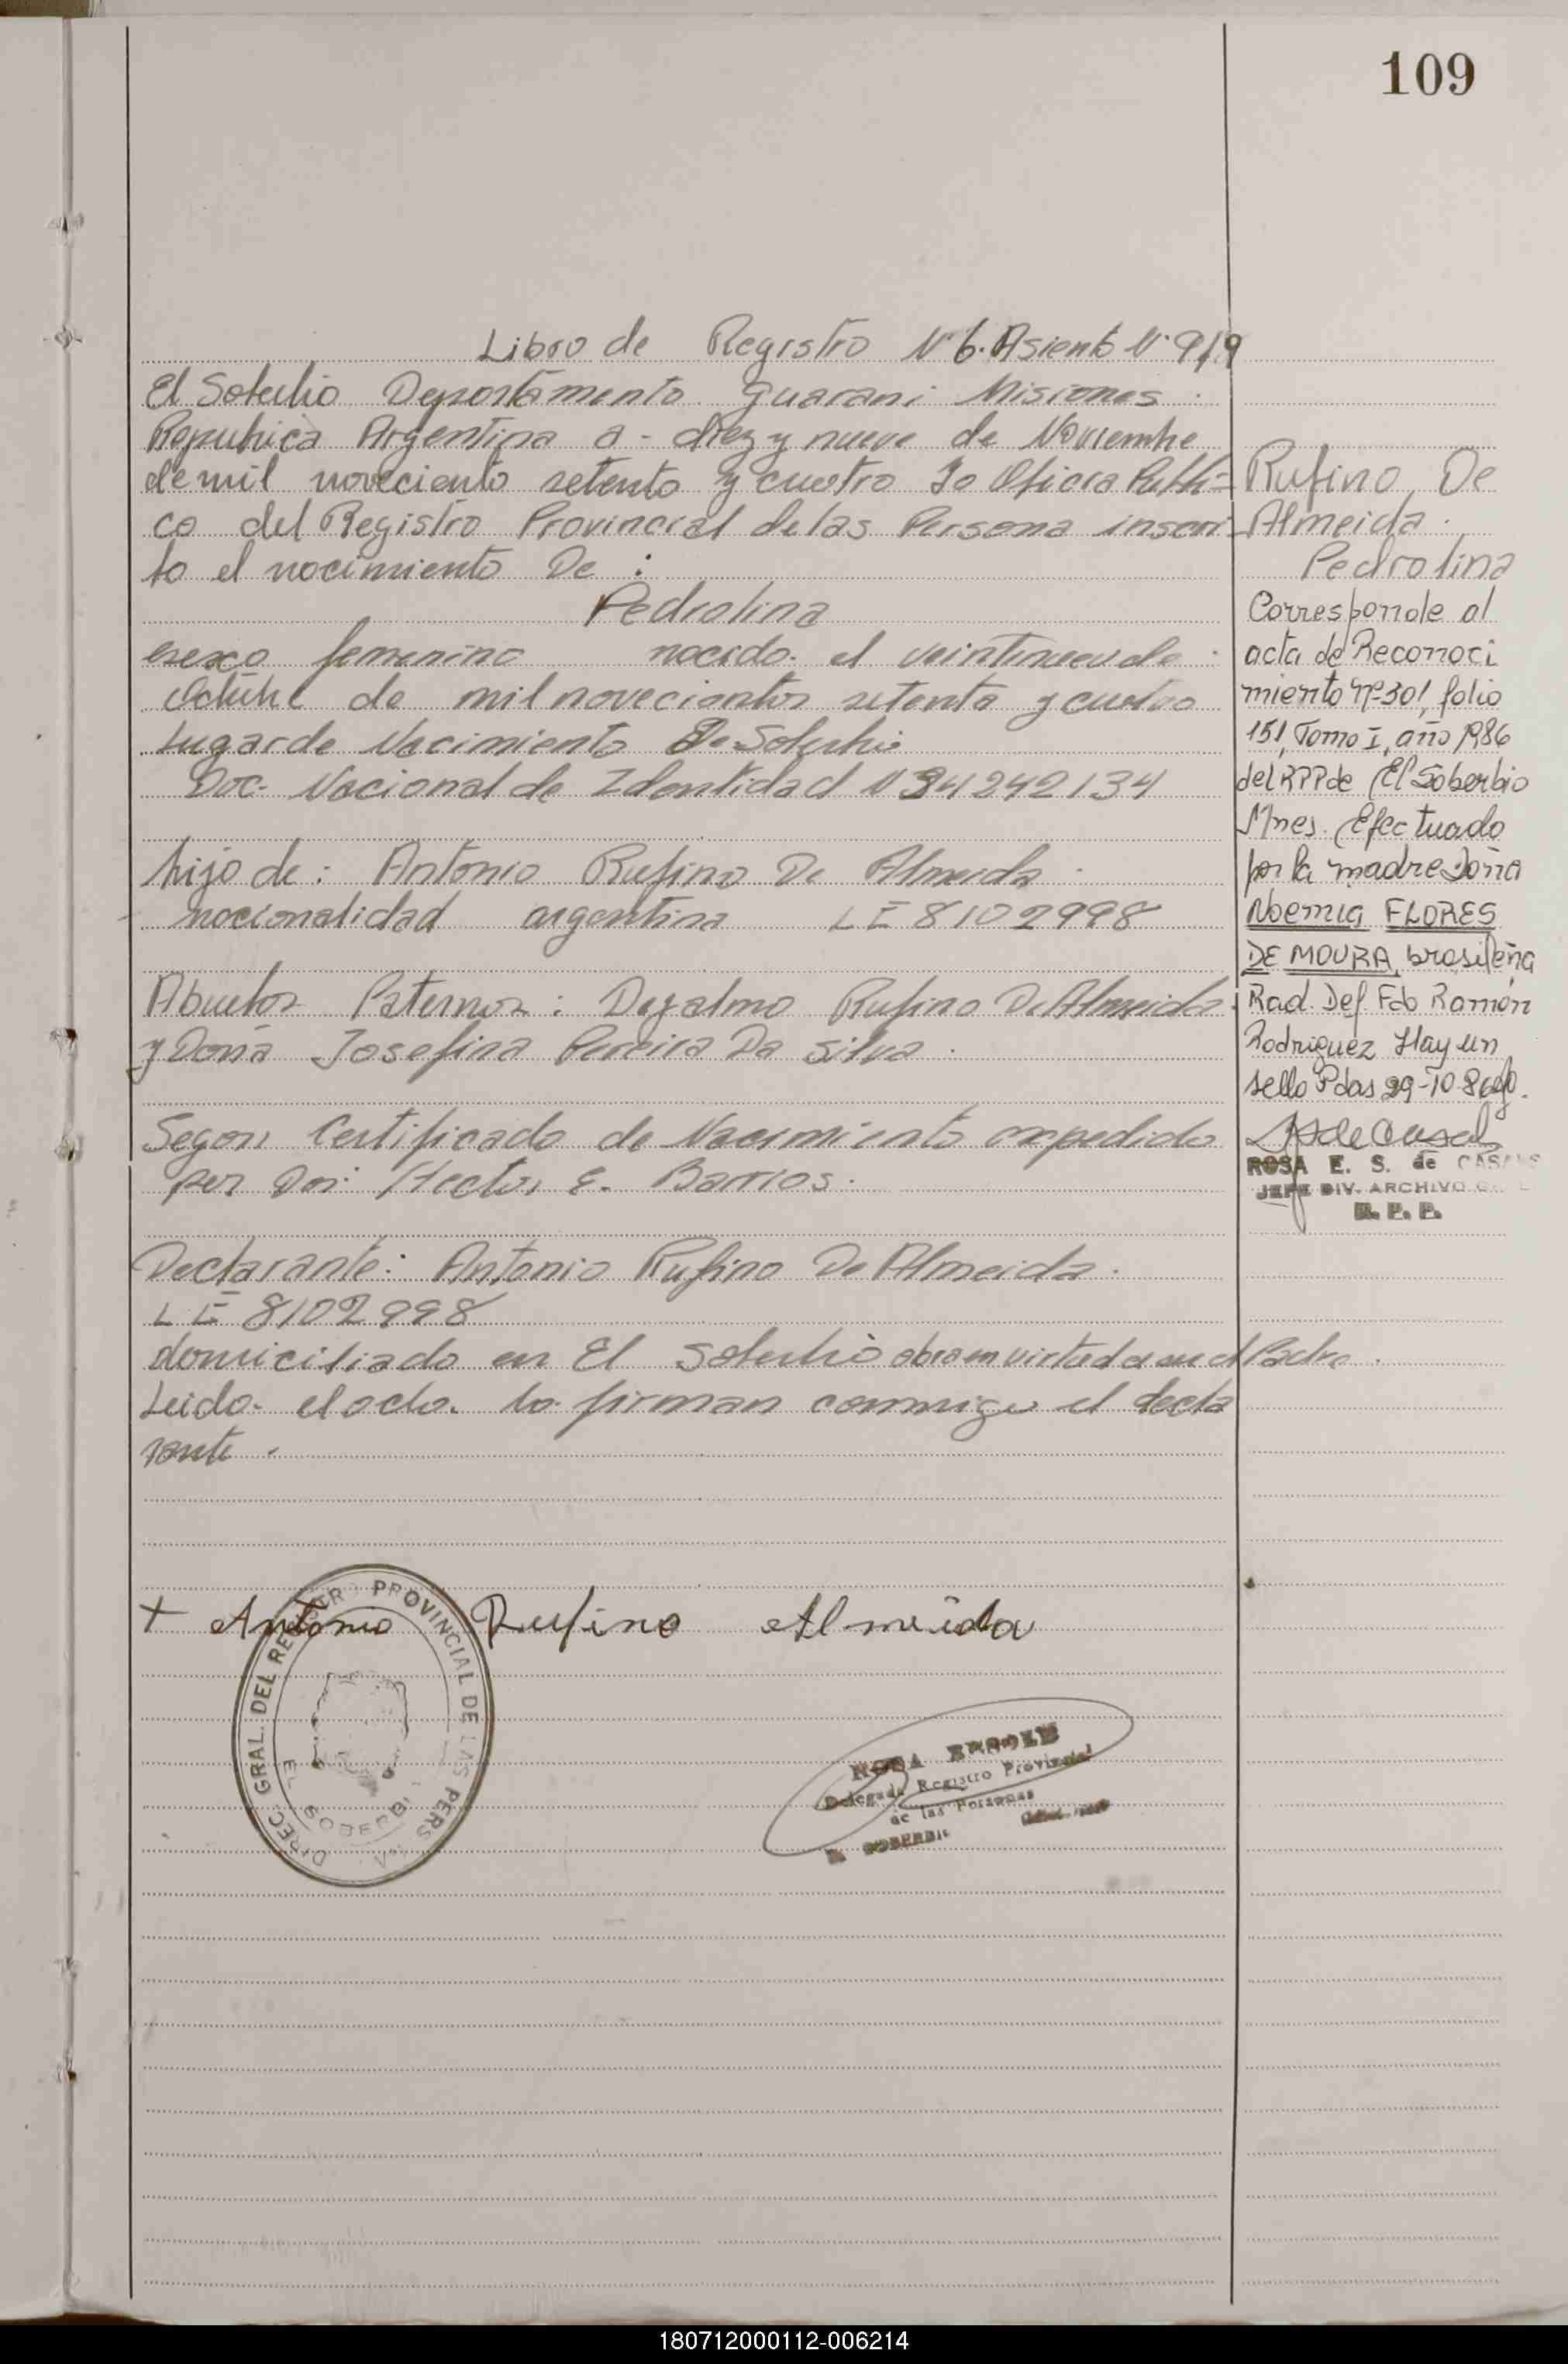 109
Libro de Registro Nº 6. Asiento Nº 919
El Soberbio Departamento Guarani Misiones
Republica Argentina a - diez y nueve de Noviembre
de mil noveciento setenta y cuatro Yo Oficial Publi-
co del Registro Provincial de las Persona inscri-
to el nacimiento De :
Pedrolina
sexo femenino nacido. el veintinueve de
Octubre de mil novecientos setenta y cuatro
Lugar de Nacimiento El Soberbio
Doc. Nacional de Identidad N 24242134
hijo de : Antonio Rufino De Almeida
nacionalidad argentina L E 8102998
Abuelos Paternos : Dejalmo Rufino De Almeida
y Dona Josefina Pereira Da Silva .
Segun Certificado de Nacimiento expedido
por Don: Hector E. Barrios.
Declarante: Antonio Rufino De Almeida.
L E 8102998
domiciliado en El Soberbio obra en virtud de ser el Padre .
Leido. el acta. la firman conmigo el decla
rante .
Rufino, De
Almeida .
Pedrolina
Corresponde al
acta de Reconoci
miento nº 301, folio
151, Tomo I, año 1986
del RPP de El Soberbio
Mnes. Efectuado
por la madre Doña
Noemia FLORES
DE MOURA, brasileña
Rad. Def. Fdo Ramón
Rodriguez Hay un
sello Pdas 29-10-86
ROSA E. S. de CASALS
JEFE DIV. ARCHIVO
R. P. P.
+ Antonio Rufino Almeida
DIREC. GRAL. DEL REGISTR PROVINCIAL DE LAS PERS
EL SOBERBI
ROSA
Delegada Registro Provincial
de las Personas
SOBERBIO
180712000112-006214